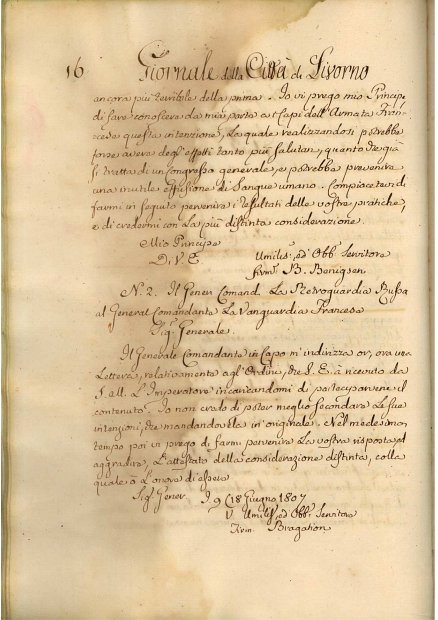 16 Giornale della Città di Livorno
ancora più terribile della prima. Io vi prego mio Principe
di fare conoscere da mia parte a' Capi dell'Armata Fran-
cese questa intenzione, la quale realizzandosi potrebbe
forse avere degl'effetti tanto più salutari, quanto che già
si tratta di un Congresso generale, e potrebbe prevenire
una inutile effusione di Sangue umano. Compiacetevi di
farmi in seguito pervenire i resultati delle vostre pratiche,
e di credermi con la più distinta considerazione.
Mio Principe
D. V. E. Umiliss. ed Obb. Servitore
firm. B. Benigsen
N. 2. Il Gener. Comand. La Retroguardia Russa
al General Comandante La Vanguardia Francese
Sig. Generale.
Il Generale Comandante in Capo m'indirizza or, ora una
Lettera, relativamente agl'Ordini, che S. E. à ricevuto da
S. M. L'Imperatore incaricandomi di parteciparvene il
contenuto. Io non credo di poter meglio secondare le sue
intenzioni, che mandandovela in originale. Nel medesimo
tempo poi vi prego di farmi pervenire la vostra risposta, ed
aggradire, L'attestato della considerazione distinta, colla
quale ò L'onore di essere
Sig. Gener. I 9 (18 Giugno 1807
V. Umiliss. ed Obb. Servitore
Firm. Bragation